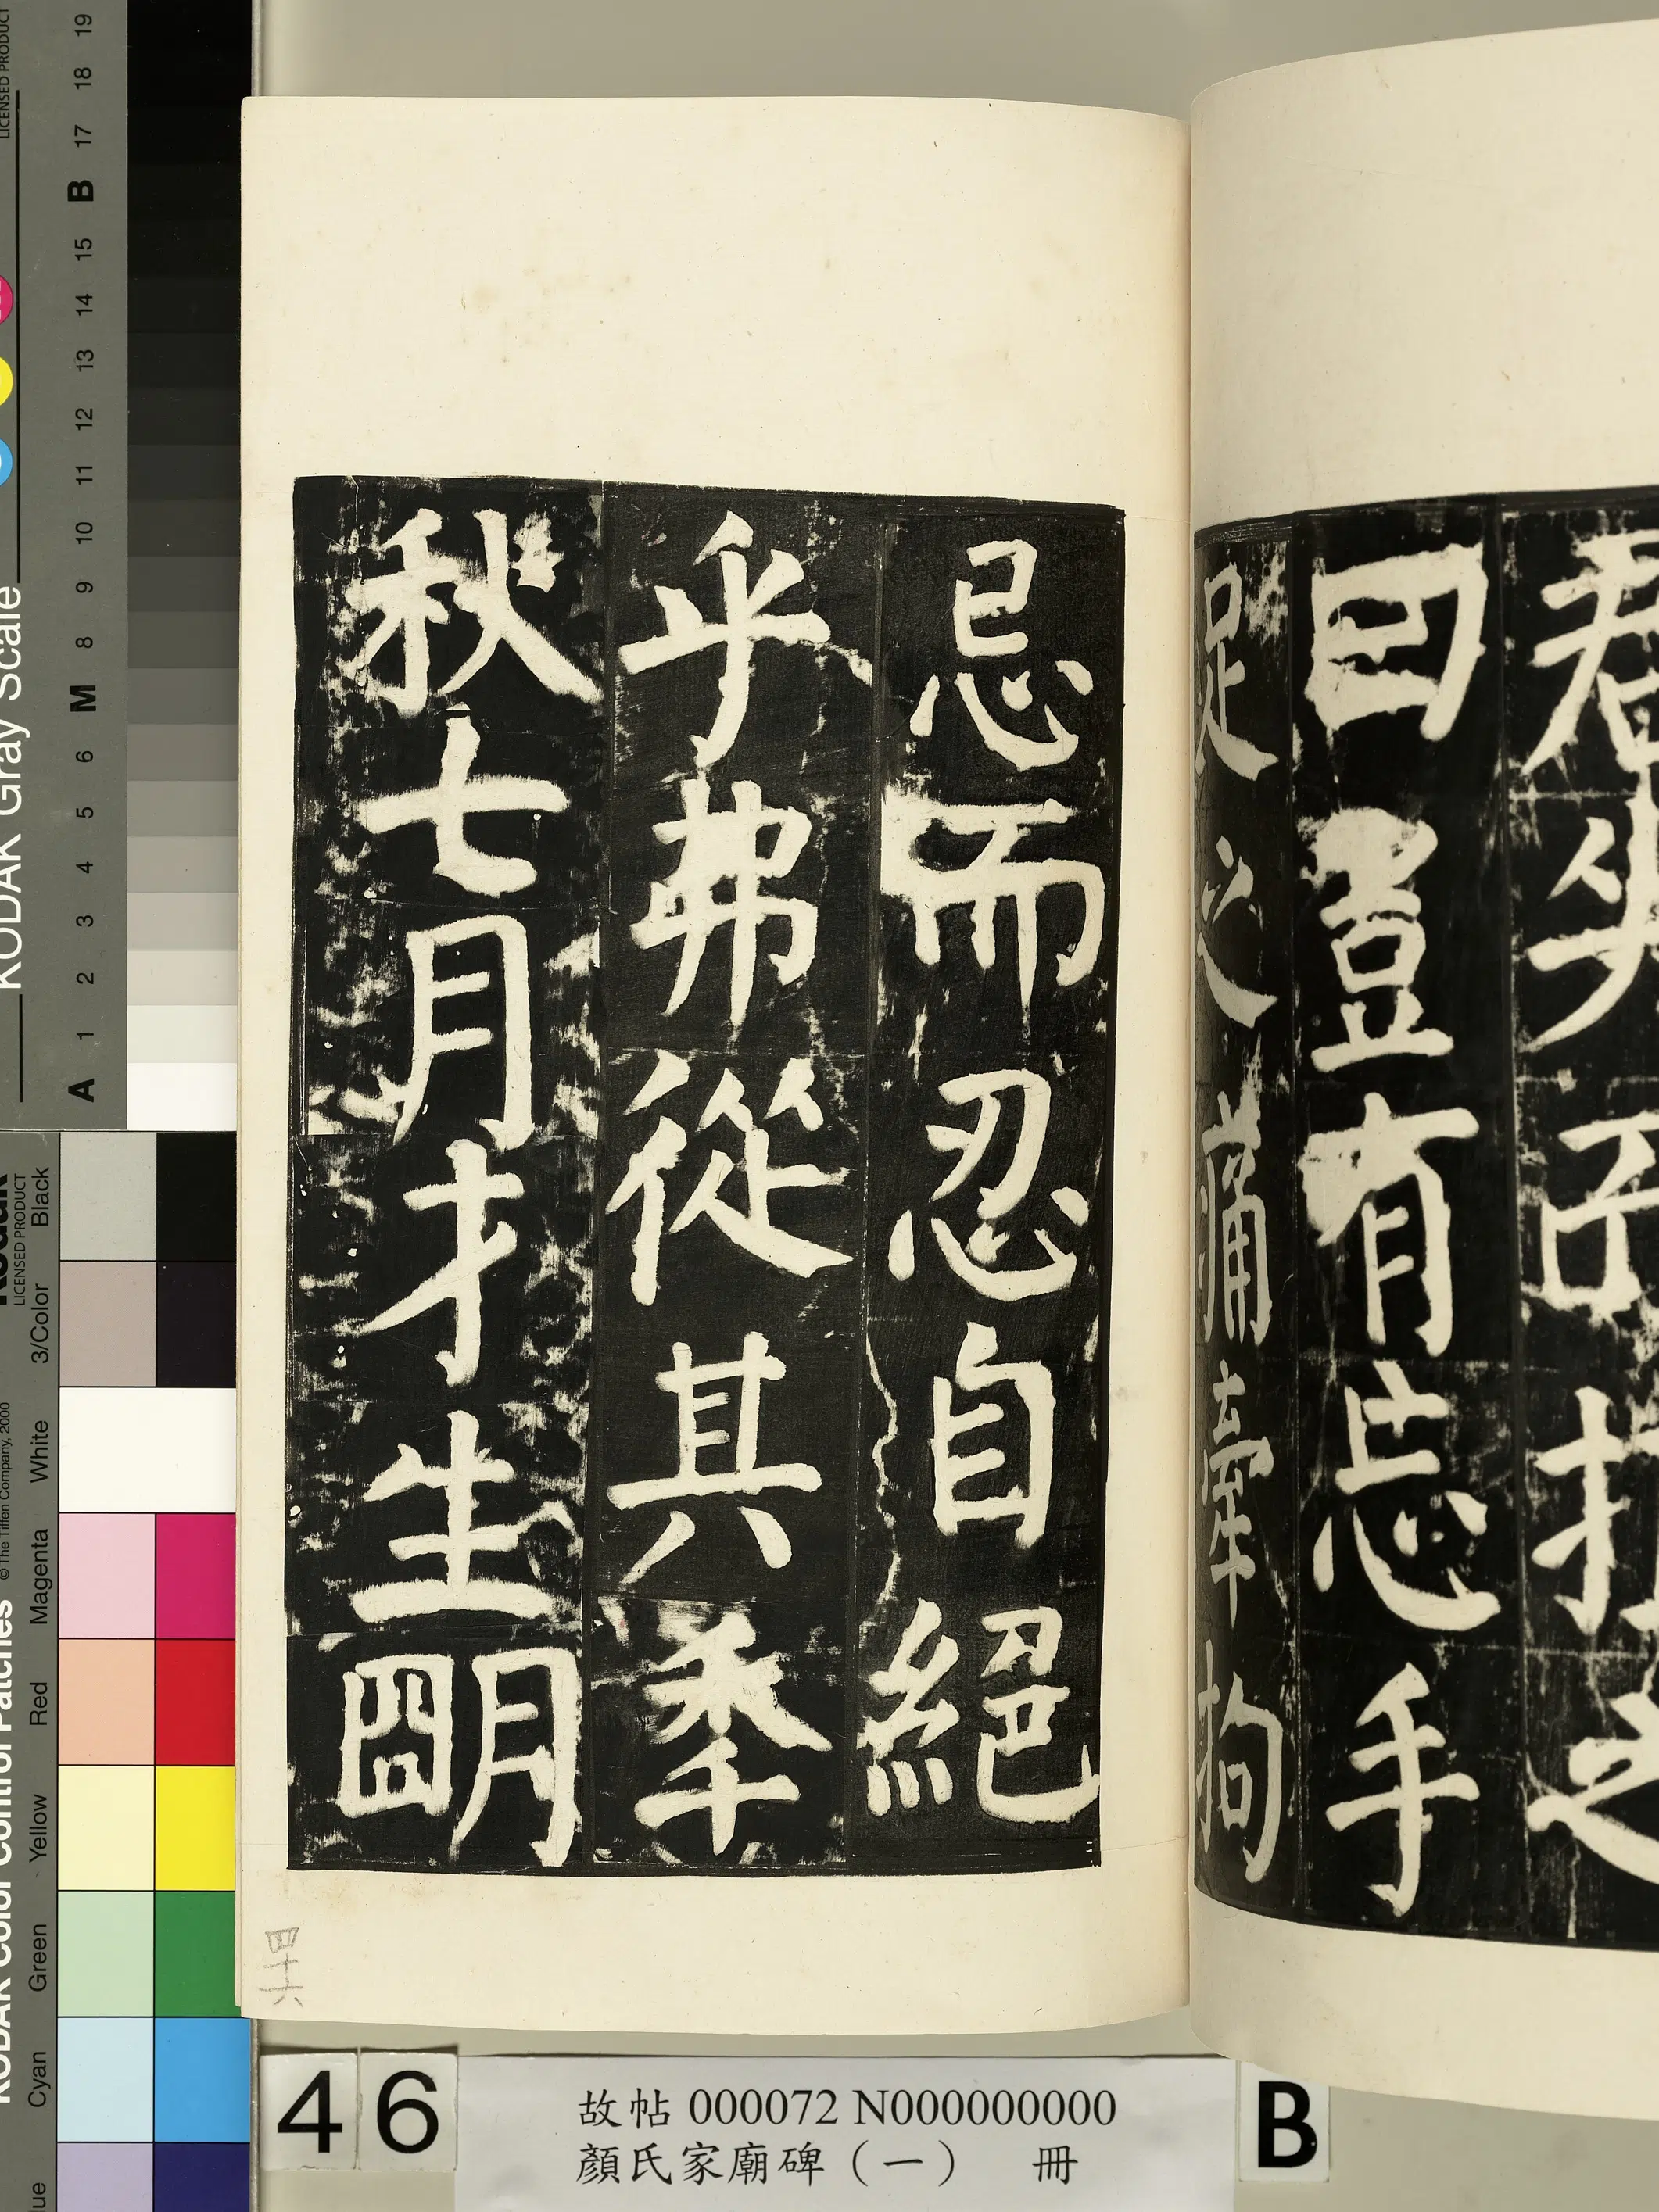 曰豈有忘手
足之痛牽拘
忌而忍自絕
乎弗從其秊
秋七月才生朙
四十六
46
故帖 000072 N000000000
顏氏家廟碑（一） 冊
B
KODAK Gray Scale
LICENSED PRODUCT
A 1 2 3 4 5 6 M 8 9 10 11 12 13 14 15 B 17 18 19
KODAK Color Control Patches
© The Tiffen Company, 2000
Kodak
LICENSED PRODUCT
Cyan Green Yellow Red Magenta White 3/Color Black